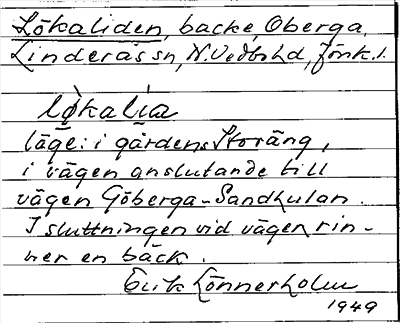 Lökaliden, backe, Oberga,
Linderås sn, N. Vedbo hd, Jönk. l.
lø̀kalia
läge: i gårdens Storäng,
i vägen anslutande till
vägen Göberga-Sandkulan.
I sluttningen vid vägen rin-
ner en bäck.
Erik Lönnerholm
1949